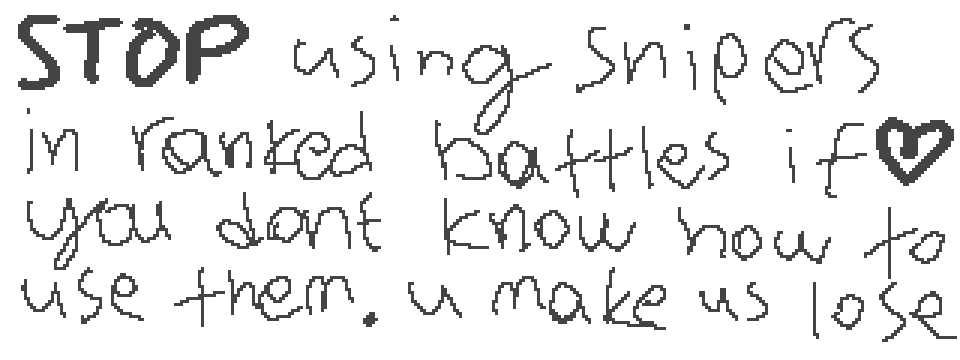 STOP using snipers
in ranked battles if ♡
you dont know how to
use them. u make us lose